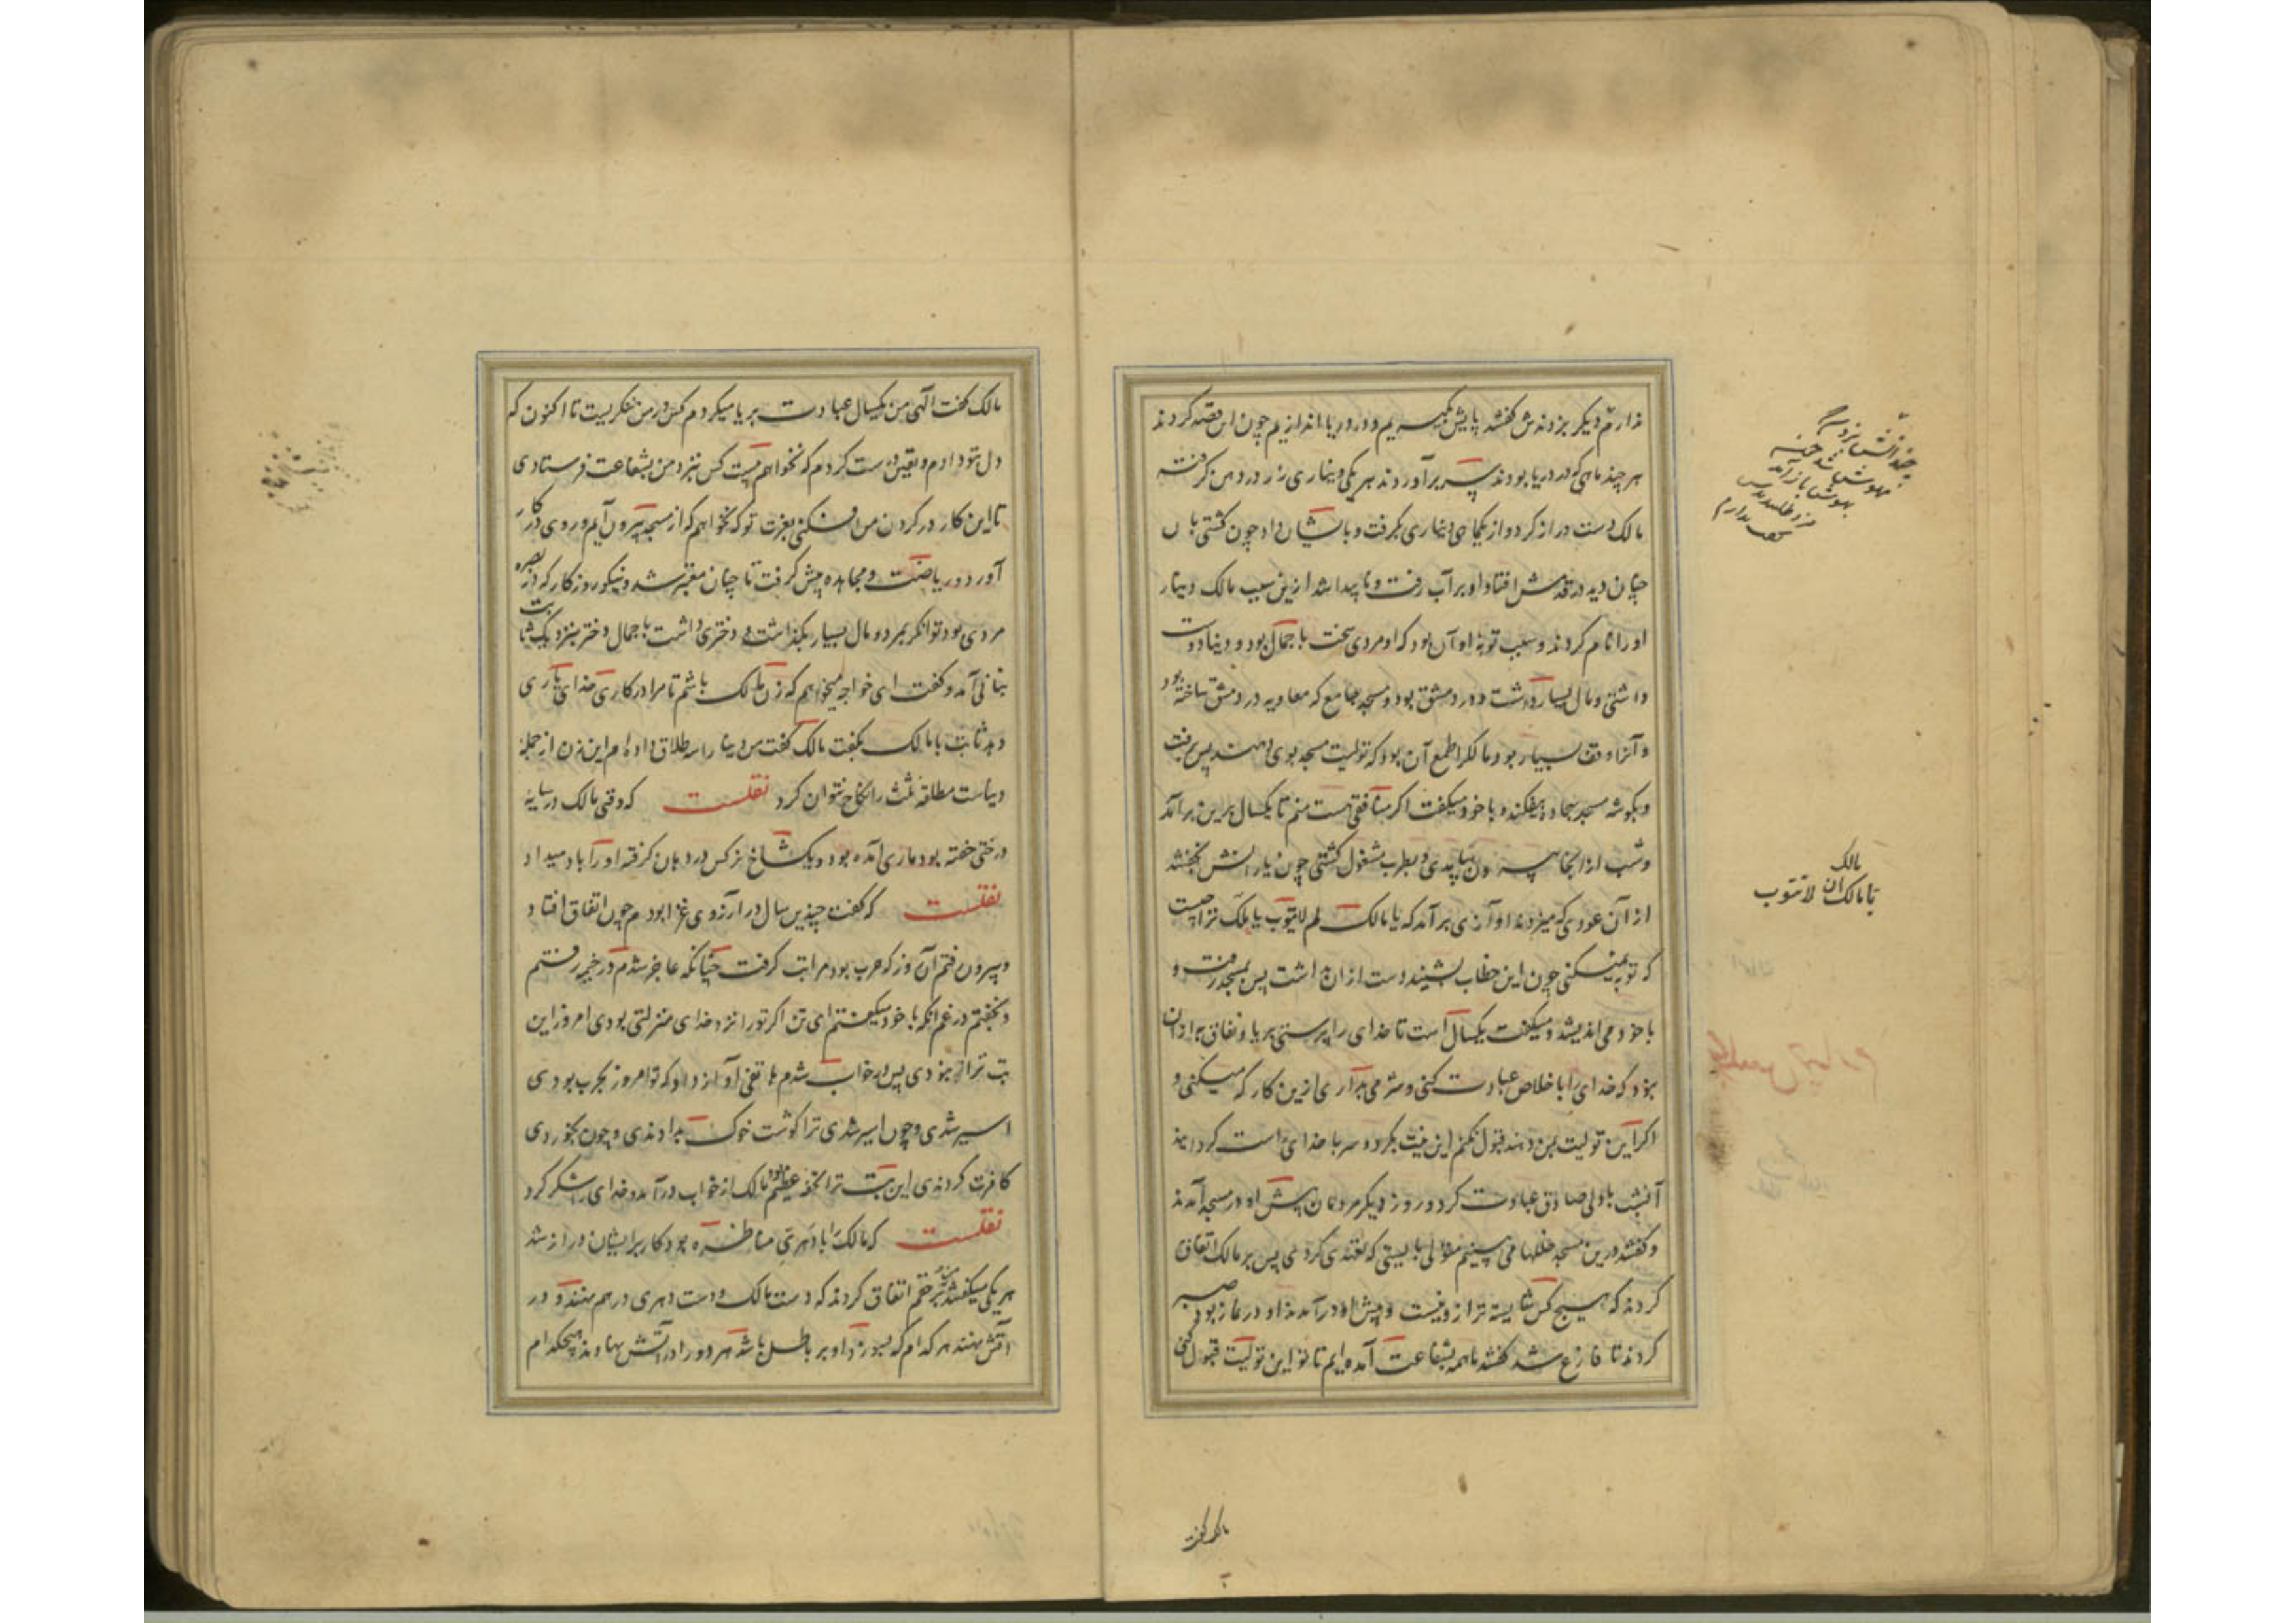 ندارم دیکر بزدندش کفتند پایش بگیریم و در دریا اندازیم چون این قصد کردند
هر چند ماهی که در دریا بودند سر برآوردند هر یکی دیناری زر در دهن کرفته
مالک دست دراز کرد و از یک ماهی دیناری بکرفت و بایشان داد چون کشتی بان
چنان دید در قدمش افتاد او بر آب رفت و ناپیدا شد ازین سبب مالک دینار
او را نام کردند و سبب توبه او آن بود که او مردی سخت با جمال بود و دنیا دوست
داشتی و مال بسیار داشت و در دمشق بود و مسجد جامع که معاویه در دمشق ساخته بود
و آنرا وقف بسیار بود مالک را طمع آن بود که تولیت مسجد بوی دهند پس برفت
و بکوشه مسجد سجاده بیفکند و با خود میکفت اکر منافقی هست منم تا یکسال برین برآمد
و شب از آنجا بیرون آمدی و بطرب مشغول کشتی چون یارانش بخفتند
از آن عودی که میزدند آوازی برآمد که یا مالک لم لا تتوب یا مالک ترا چیست
که توبه نمیکنی چون این خطاب بشنید دست از آن بداشت پس بمسجد رفت و
با خود می اندیشید و میکفت یکسال است تا خدای را پرستی بریا و نفاق به از آن
نبود که خدای را با خلاص عبادت کنی و شرمی بداری ازین کار که میکنی و
اکر این تولیت بمن دهند قبول نکنم این نیت بکرد و سر با خدای راست کردانید
آنشب با دلی صادق عبادت کرد و روز دیکر مردمان پیش او در مسجد آمدند
و کفتند درین مسجد خللها می بینیم متولی بایستی که تعهدی کردی پس بر مالک اتفاق
کردند که هیچ کس شایسته تر ازو نیست و پیش او در آمدند او در نماز بود صبر
کردند تا فارغ شد کفتند ما همه بشفاعت آمده ایم تا تو این تولیت قبول کنی
مالک
یا مالک ان لا تتوب
مالک کفت
مالک کفت الهی من یکسال عبادت بریا میکردم کس در من ننکریست تا اکنون که
دل بتو دادم و یقین درست کردم که نخواهم بیست کس بنزد من بشفاعت فرستادی
تا این کار در کردن من افکنی بعزت تو که نخواهم که از مسجد بیرون آیم و روی در کار
آورد و ریاضت و مجاهده پیش کرفت تا چنان معتبر شد و نیکو روزکار که در بصره
مردی بود توانکر بمرد و مال بسیار بکذاشت و دختری داشت با جمال دختر بنزدیک ثابت
بنانی آمد و کفت ای خواجه میخواهم که زن مالک باشم تا مرا در کاری خدای یاری
دهد ثابت با مالک بکفت مالک کفت من دنیا را سه طلاق داده ام این زن از جمله
دنیاست مطلقه ثلث را نکاح نتوان کرد نقلست که وقتی مالک در سایه
درختی خفته بود ماری آمده بود و یک شاخ نرکس در دهان کرفته او را باد میداد
نقلست که کفت چندین سال در آرزوی غزا بودم چون اتفاق افتاد
و بیرون رفتم آن روز که حرب بود مرا تب کرفت چنانکه عاجز شدم در خیمه رفتم
و بخفتم در غم آنکه با خود میکفتم ای تن اکر تو را نزد خدای منزلتی بودی امروز این
تب ترا نبودی پس در خواب شدم هاتفی آواز داد که تو امروز بحرب بودی
اسیر شدی و چون اسیر شدی ترا کوشت خوک بدادندی و چون بخوردی
کافرت کردندی این تب ترا تحفه عظیم بود مالک از خواب درآمد و خدای را شکر کرد
نقلست که مالک را با دهری مناظره بود کار بر ایشان دراز شد
هر یکی میکفتند من بر حقم اتفاق کردند که دست مالک و دست دهری در هم بندند و در
آتش نهند هر کدام که بسوزد او بر باطل باشد هر دو را در آتش نهادند هیچکدام